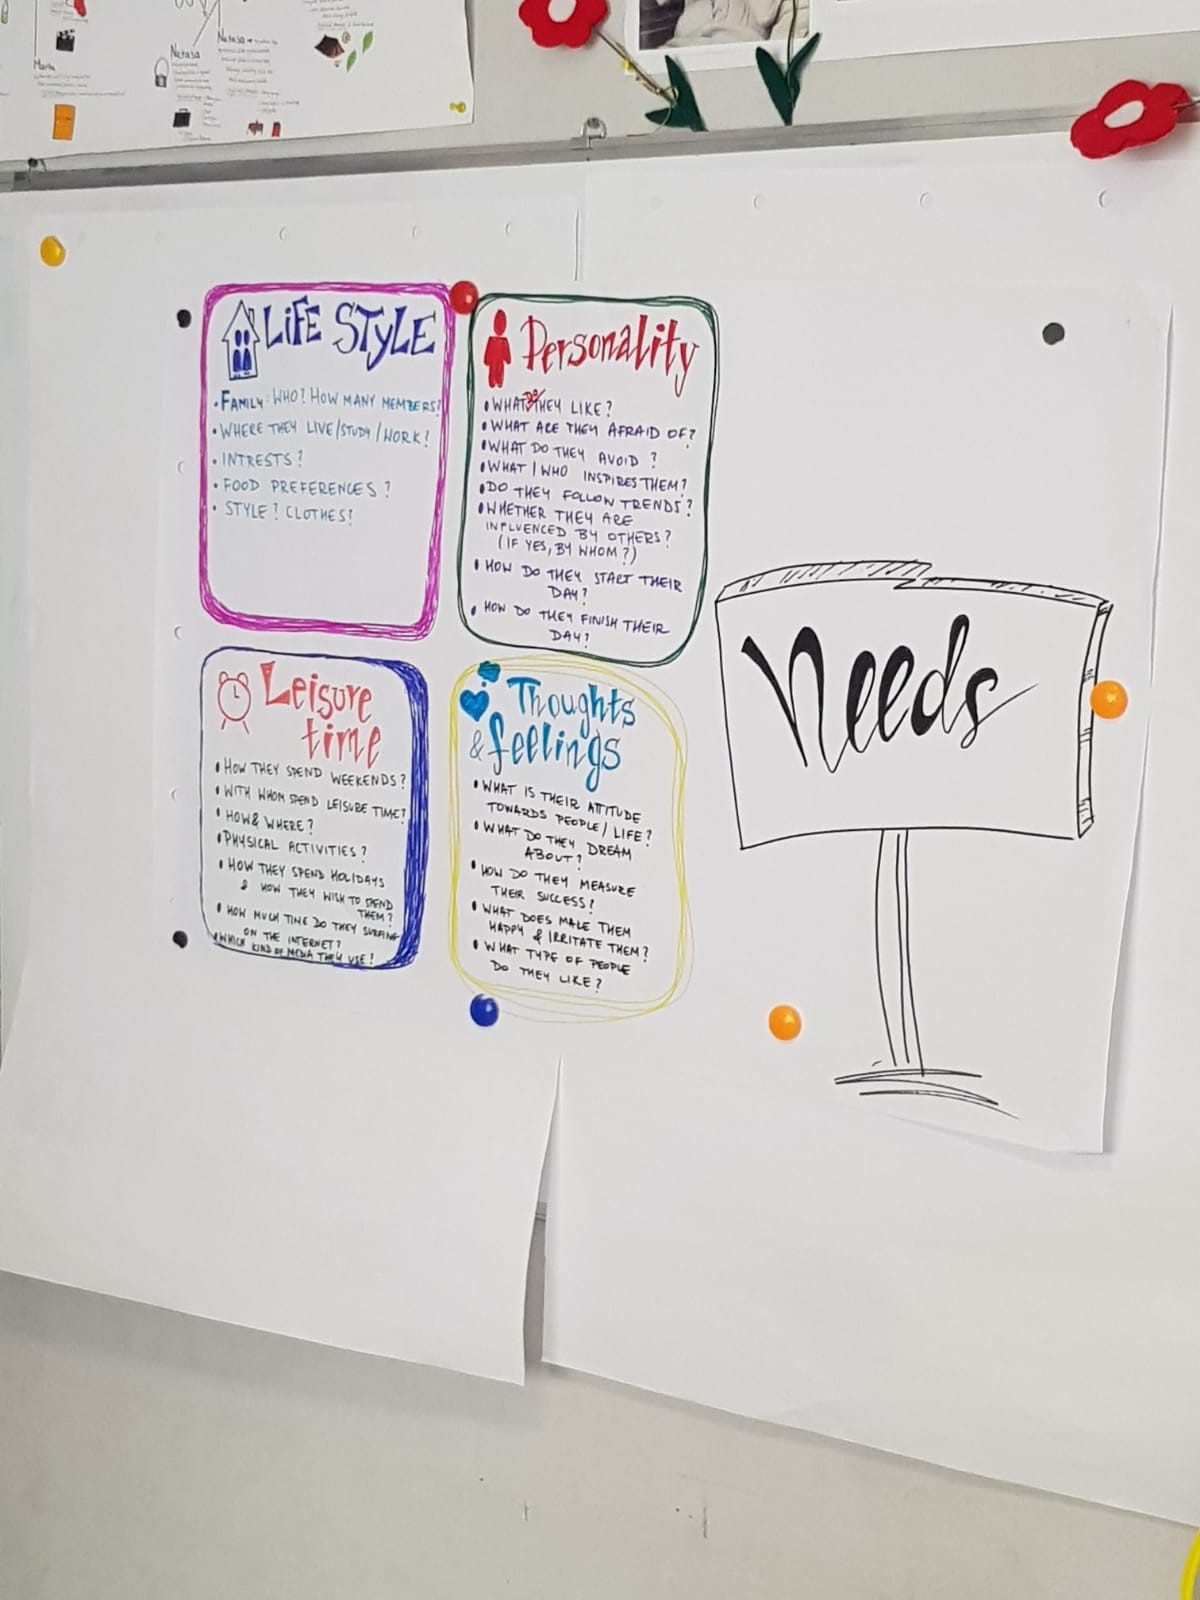 Marta
Natasa
Natasa
LiFE STyLE
• FAMILY: WHO? HOW MANY MEMBERS?
• WHERE THEY LIVE/STUDY/WORK?
• INTRESTS?
• FOOD PREFERENCES?
• STYLE? CLOTHES?
Personality
• WHAT DO THEY LIKE?
• WHAT ARE THEY AFRAID OF?
• WHAT DO THEY AVOID?
• WHAT/WHO INSPIRES THEM?
• DO THEY FOLLOW TRENDS?
• WHETHER THEY ARE
INFLUENCED BY OTHERS?
(IF YES, BY WHOM?)
• HOW DO THEY START THEIR
DAY?
• HOW DO THEY FINISH THEIR
DAY?
Leisure
time
• HOW THEY SPEND WEEKENDS?
• WITH WHOM SPEND LEISURE TIME?
• HOW & WHERE?
• PHYSICAL ACTIVITIES?
• HOW THEY SPEND HOLIDAYS
& HOW THEY WISH TO SPEND
THEM?
• HOW MUCH TIME DO THEY SURFING
ON THE INTERNET?
• WHICH KIND OF MEDIA THEY USE?
Thoughts
& feelings
• WHAT IS THEIR ATTITUDE
TOWARDS PEOPLE/LIFE?
• WHAT DO THEY DREAM
ABOUT?
• HOW DO THEY MEASURE
THEIR SUCCESS?
• WHAT DOES MAKE THEM
HAPPY & IRRITATE THEM?
• WHAT TYPE OF PEOPLE
DO THEY LIKE?
Needs